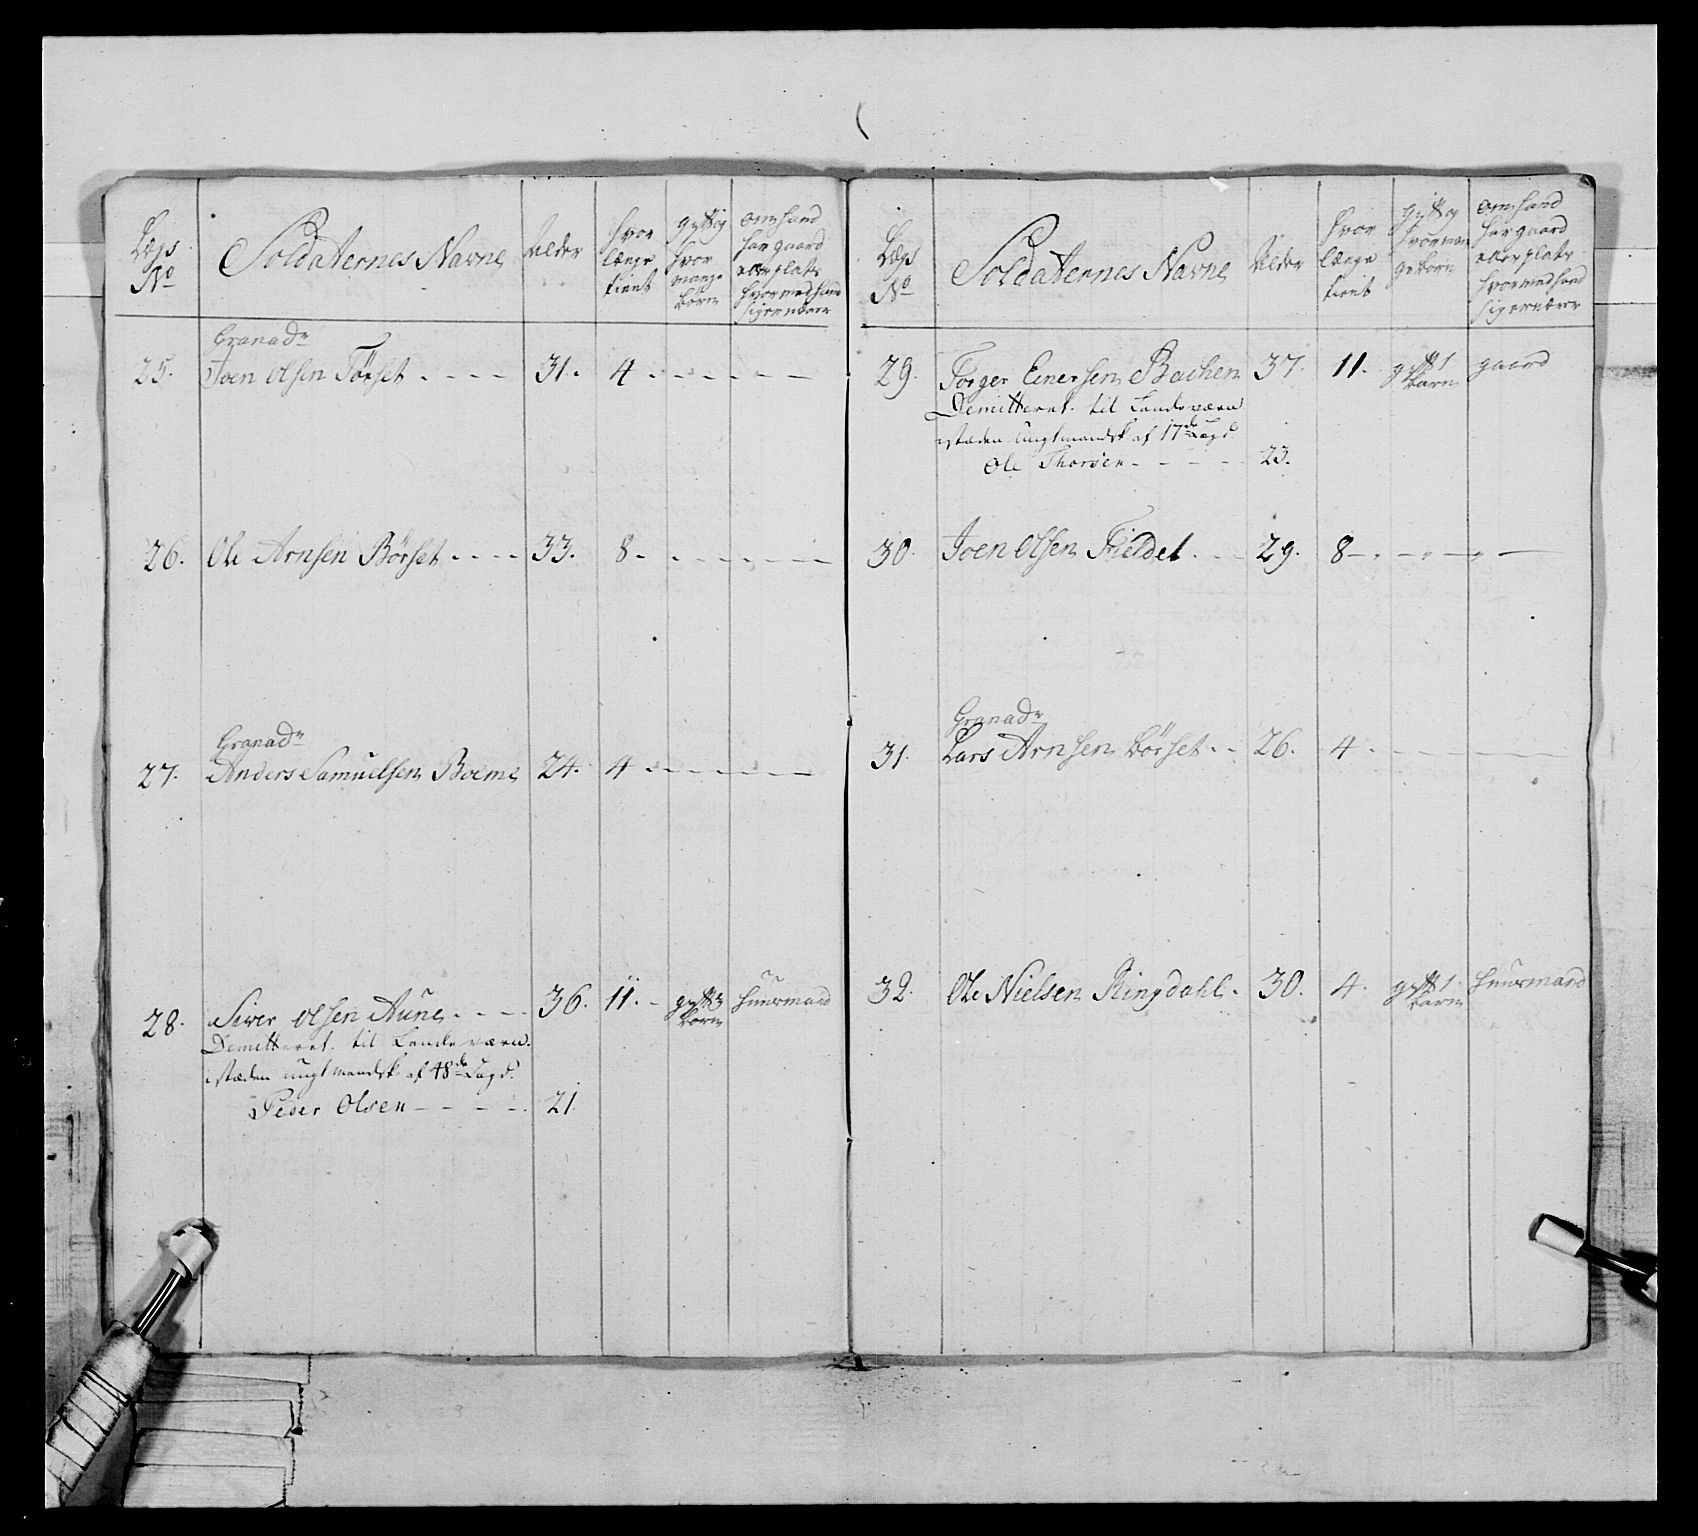 Lægs No
Soldaternes Navne
Alder
hvor længe tient
gift og hvor mange børn
om hand har gaard eller plads hvormed hand sig ernærer
Granadr
25. Joen Olsen Törset . - - - 31. 4 . - - - - -
26. Ole Arnsen Börset . - - - 33. 8 - . - - - - -
Granadr
27. Anders Samuelsen Boeme 24. 4 . - - - - -
28. Siver Olsen Aune . - - - 36. 11. - gift 3 børn huusmand
Demitteret til Landeværn
istæden ungt mandsk. af 48de Lægd.
Peder Olsen - - - - 21.
Lægs No
Soldaternes Navne
Alder
hvor længe tient
gift og hvor mange børn
om hand har gaard eller plads hvormed hand sig ernærer
29. Torger Einersen Bachen 37. 11. gift 1 barn gaard
Demitteret til Landeværn
istæden ungt mandsk. af 17de Lægd.
Ole Thorsen - - - - 23.
30. Joen Olsen Fieldet . - - 29. 8 - . - - -
Granadr
31. Lars Arnsen Börset . - 26. 4 . - - - -
32. Ole Nielsen Ringdahl . 30. 4. gift 1 barn huusmand